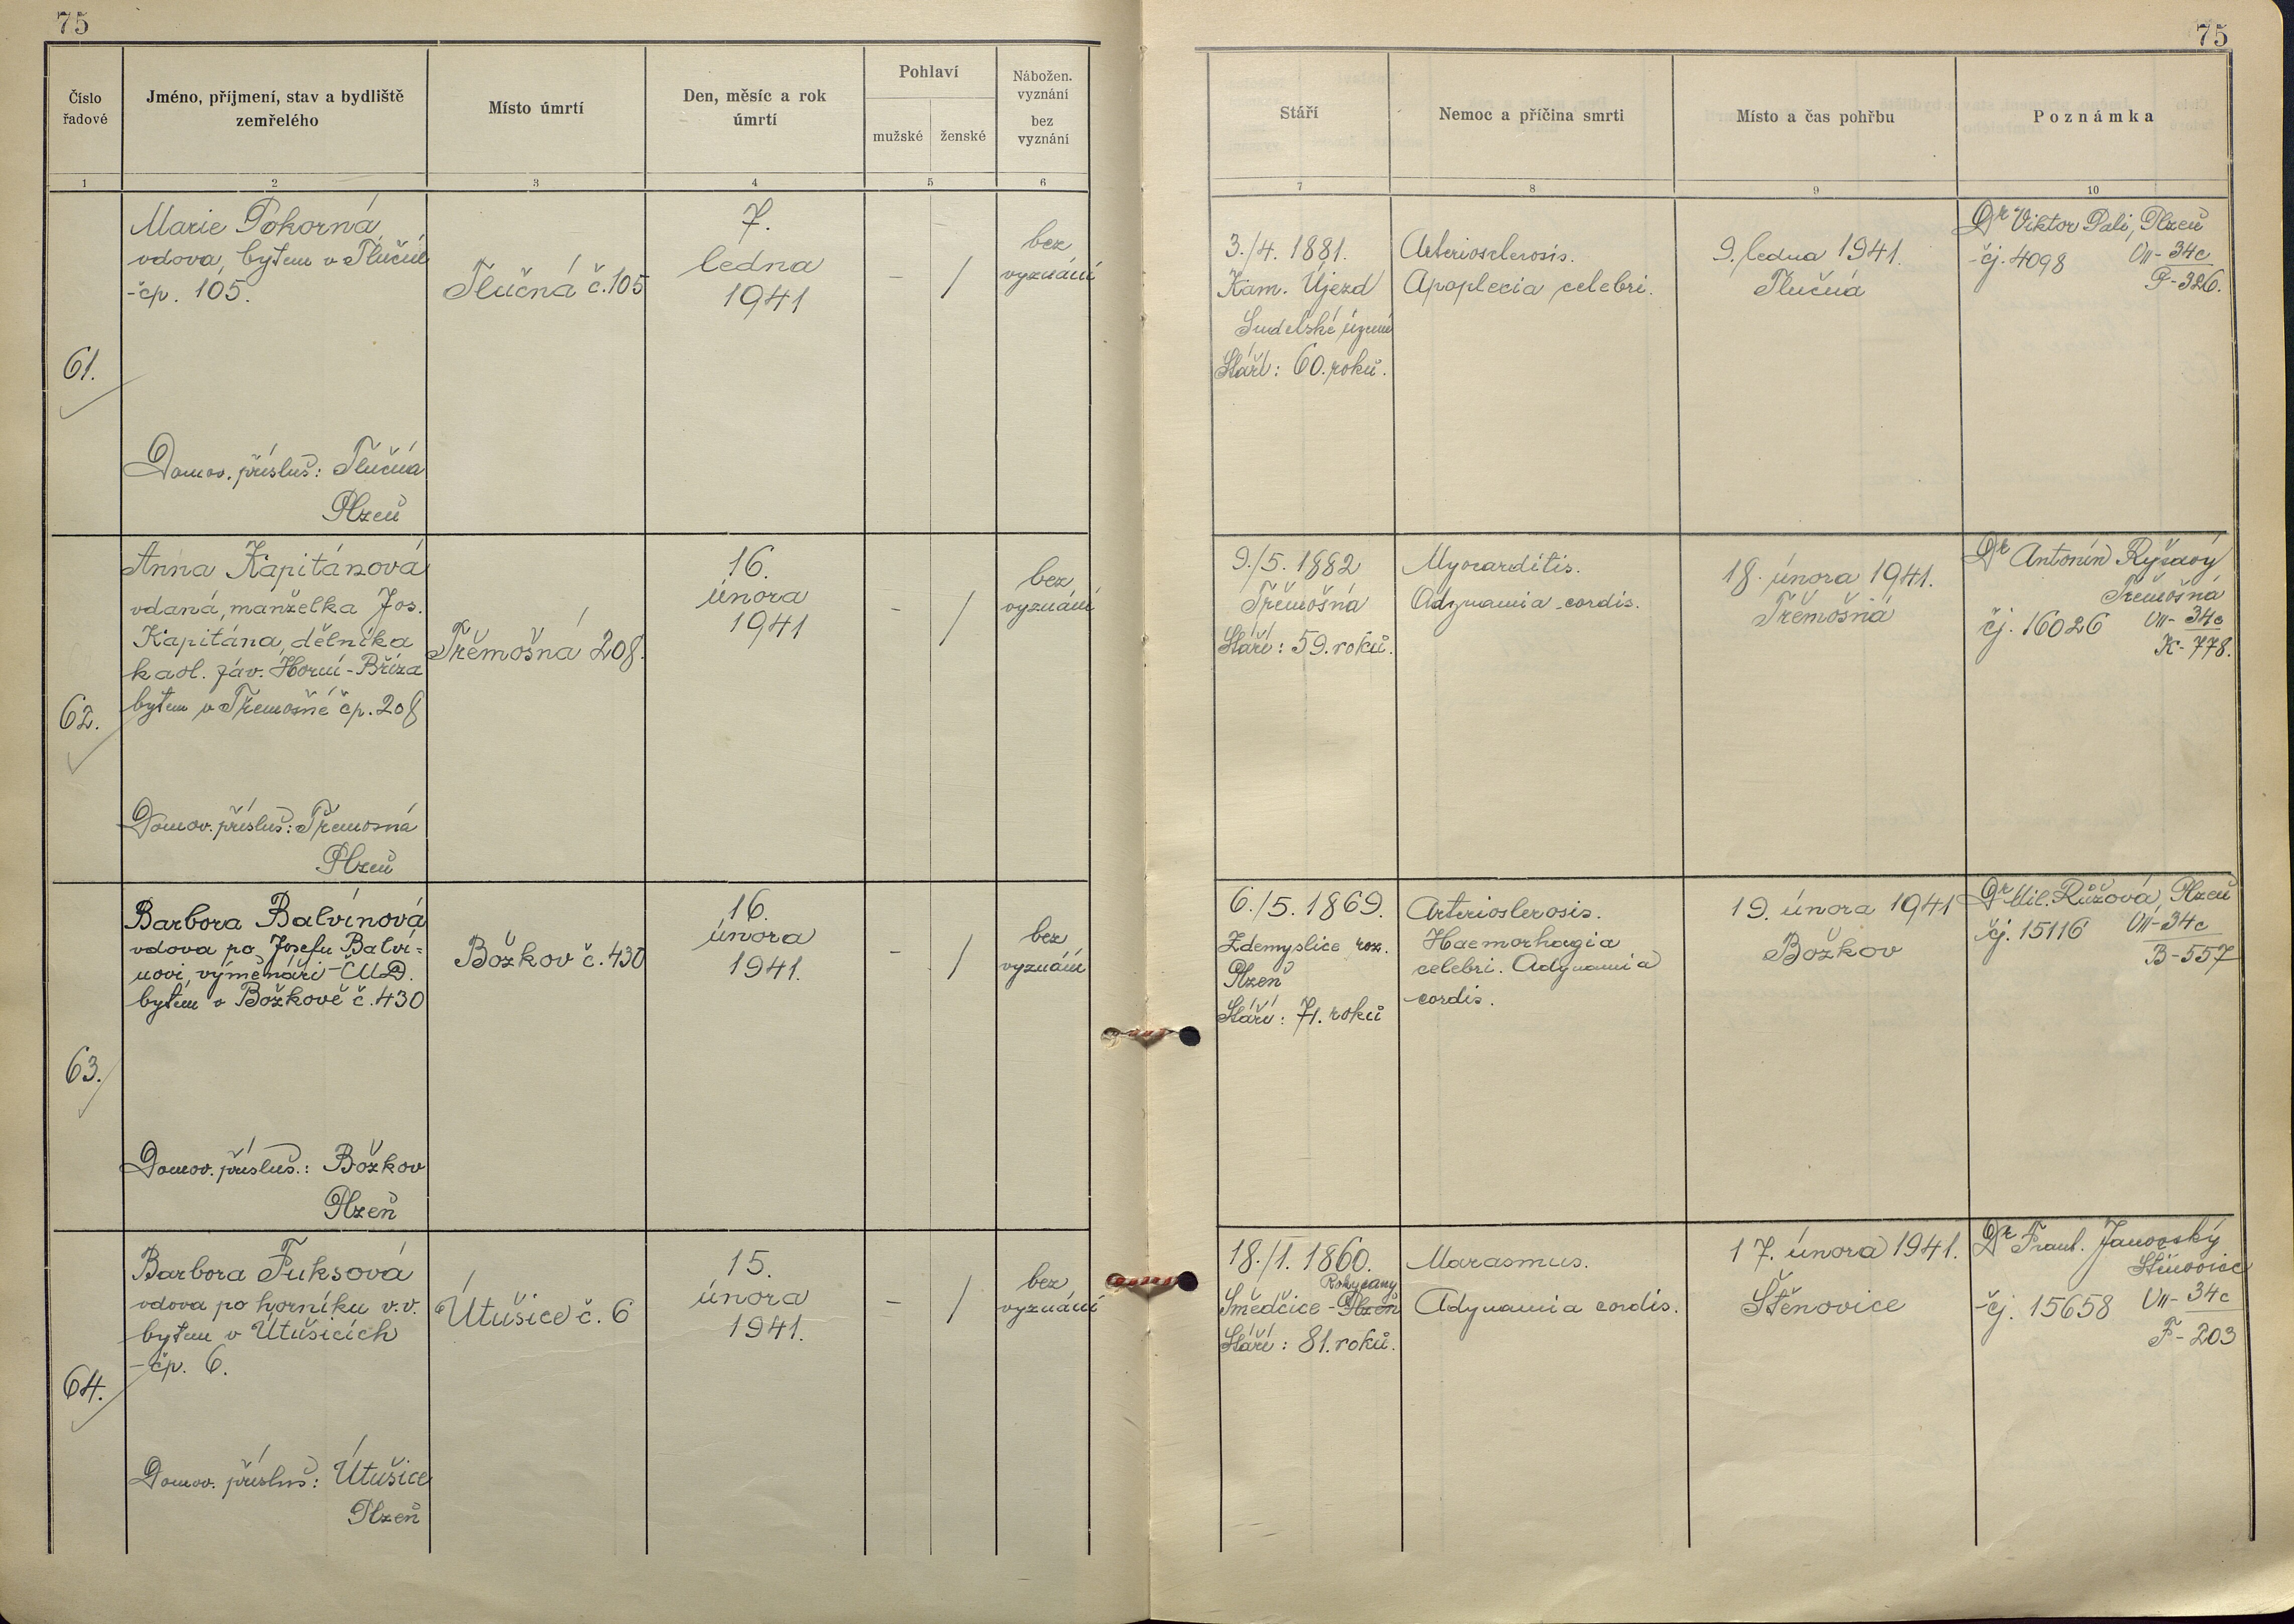 75
75
Číslo řadové
Jméno, příjmení, stav a bydliště zemřelého
Místo úmrtí
Den, měsíc a rok úmrtí
Pohlaví
mužské
ženské
Nábožen. vyznání
bez vyznání
Stáří
Nemoc a příčina smrti
Místo a čas pohřbu
Poznámka
1 2 3 4 5 6 7 8 9 10
61.
Marie Pokorná,
vdova, bytem v Tlučné
čp. 105.
Domov. přísluš: Tlučná
Plzeň
Tlučná č. 105
7.
ledna
1941
- /
bez
vyznání
3./4. 1881.
Kam. Újezd
Sudetské území
Stáří: 60. roků.
Arteriosclerosis.
Apoplecia celebri.
9. ledna 1941.
Tlučná
Dr Viktor Pali, Plzeň
čj. 4098 VII-34c
P-326.
62.
Anna Kapitánová
vdaná, manželka Jos.
Kapitána, dělníka
kaol. záv. Horní-Bříza
bytem v Třemošné čp. 208
Domov. příslus: Třemošná
Plzeň
Třemošná 208.
16.
února
1941
- /
bez
vyznání
9./5. 1882
Třemošná
Stáří: 59. roků.
Myocarditis.
Adynamia cordis.
18. února 1941.
Třemošná
Dr Antonín Ryšavý
Třemošná
čj. 16026 VII-34c
K-778.
63.
Barbora Balvínová
vdova po Josefu Balví=
novi, výměnáři ČMD.
bytem v Božkově č. 430
Domov. příslus.: Božkov
Plzeň
Božkov č. 430
16.
února
1941.
- /
bez
vyznání
6./5. 1869.
Zdemyslice roz.
Plzeň
Stáří: 71. roků
Arterioslerosis.
Haemorhagia
celebri. Adynamia
cordis.
19. února 1941
Božkov
Dr Mil. Růžová, Plzeň
čj. 15116 VII-34c
B-557
64.
Barbora Fuksová
vdova po horníku v.v.
bytem v Útušicích
čp. 6.
Domov. příslus: Útušice
Plzeň
Útušice č. 6
15.
února
1941.
- /
bez
vyznání
18./1. 1860.
Rokycany
Smědčice - Plzeň
Stáří: 81. roků.
Marasmus.
Adynamia cordis.
17. února 1941.
Štěnovice
Dr Frant. Janovský
Štěnovice
čj. 15658 VII-34c
F-203